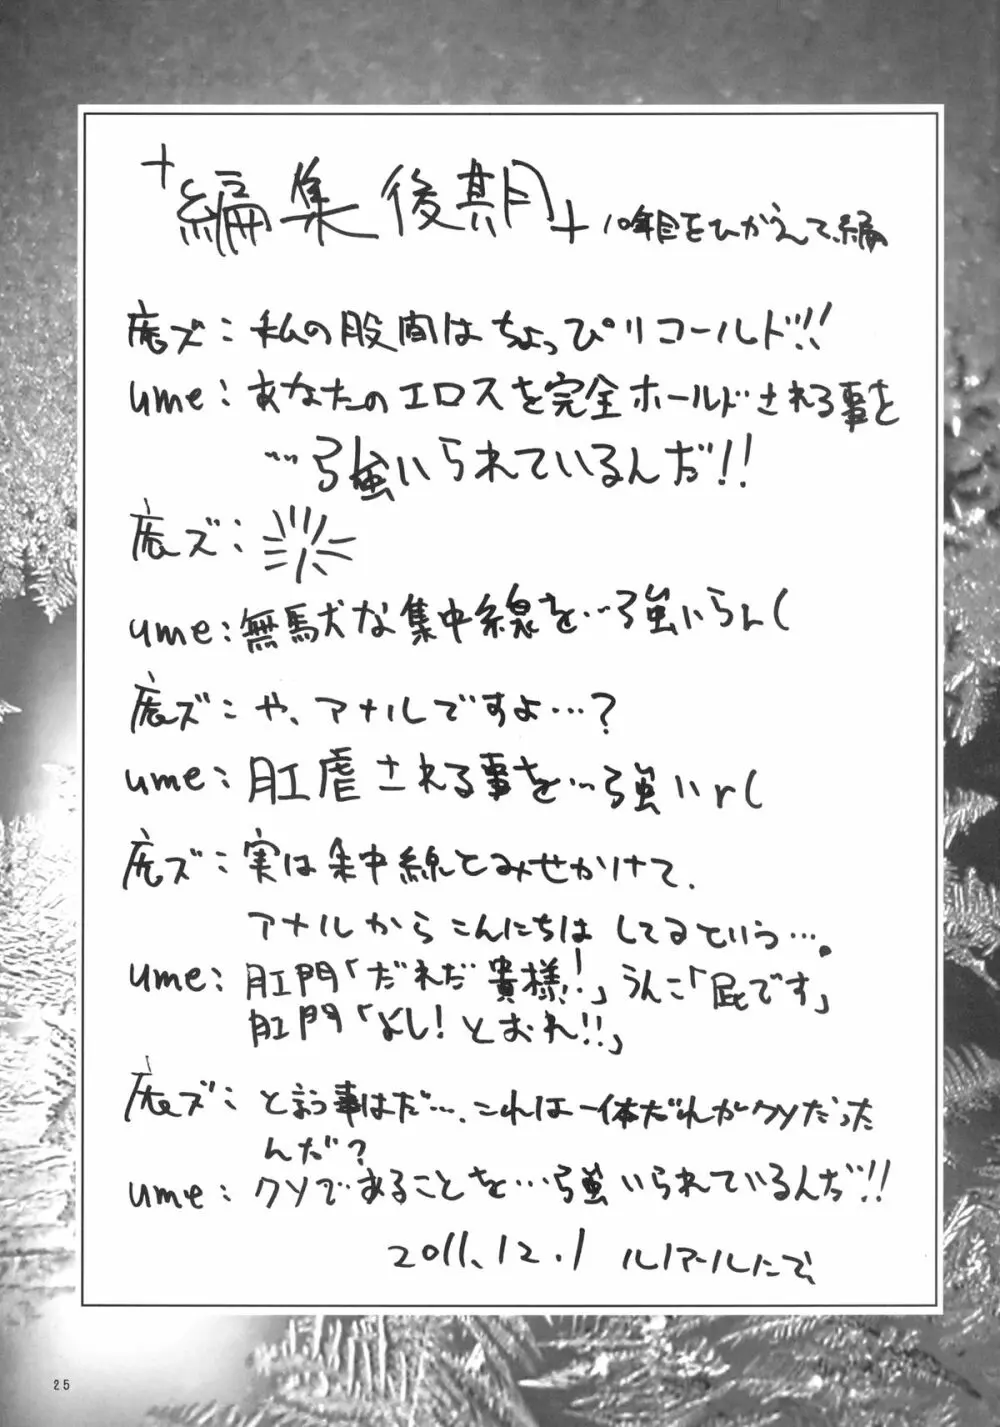 +編集後期+ 10年目をひかえて、編
鹿ズ：私の股間はちょっぴりコールド!!!
ume：あなたのエロスを完全ホールドされる事を
…強いられているんだ!!
鹿ズ：
ume：無駄な集中線を…強いらん(
鹿ズ：や、アナルですよ…？
ume：肛虐される事を…強いr(
鹿ズ：実は集中線とみせかけて、
アナルからこんにちは してるという…。
ume：肛門「だれだ 貴様!!」うんこ「屁です」
肛門「よし！とおれ!!」
鹿ズ：と言う事はだ…、これは一体だれがクソだった
んだ？
ume：クソであることを…強いられているんだ!!
2011.12.1 ルノアールにて、
25